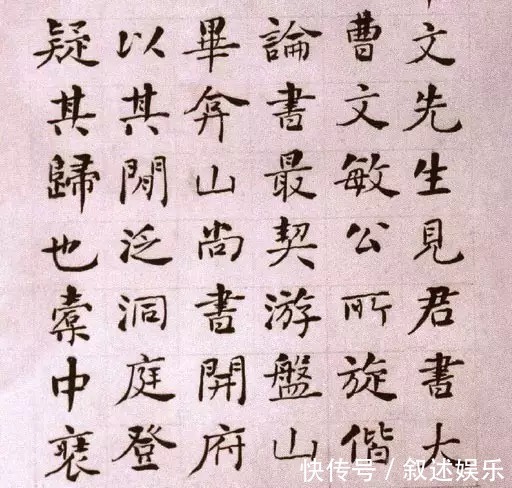 文先生見君書大
曹文敏公所旋偕
論書最契游盤山
畢弇山尚書開府
以其閒泛洞庭登
疑其歸也橐中裒
快传号/叙述娱乐